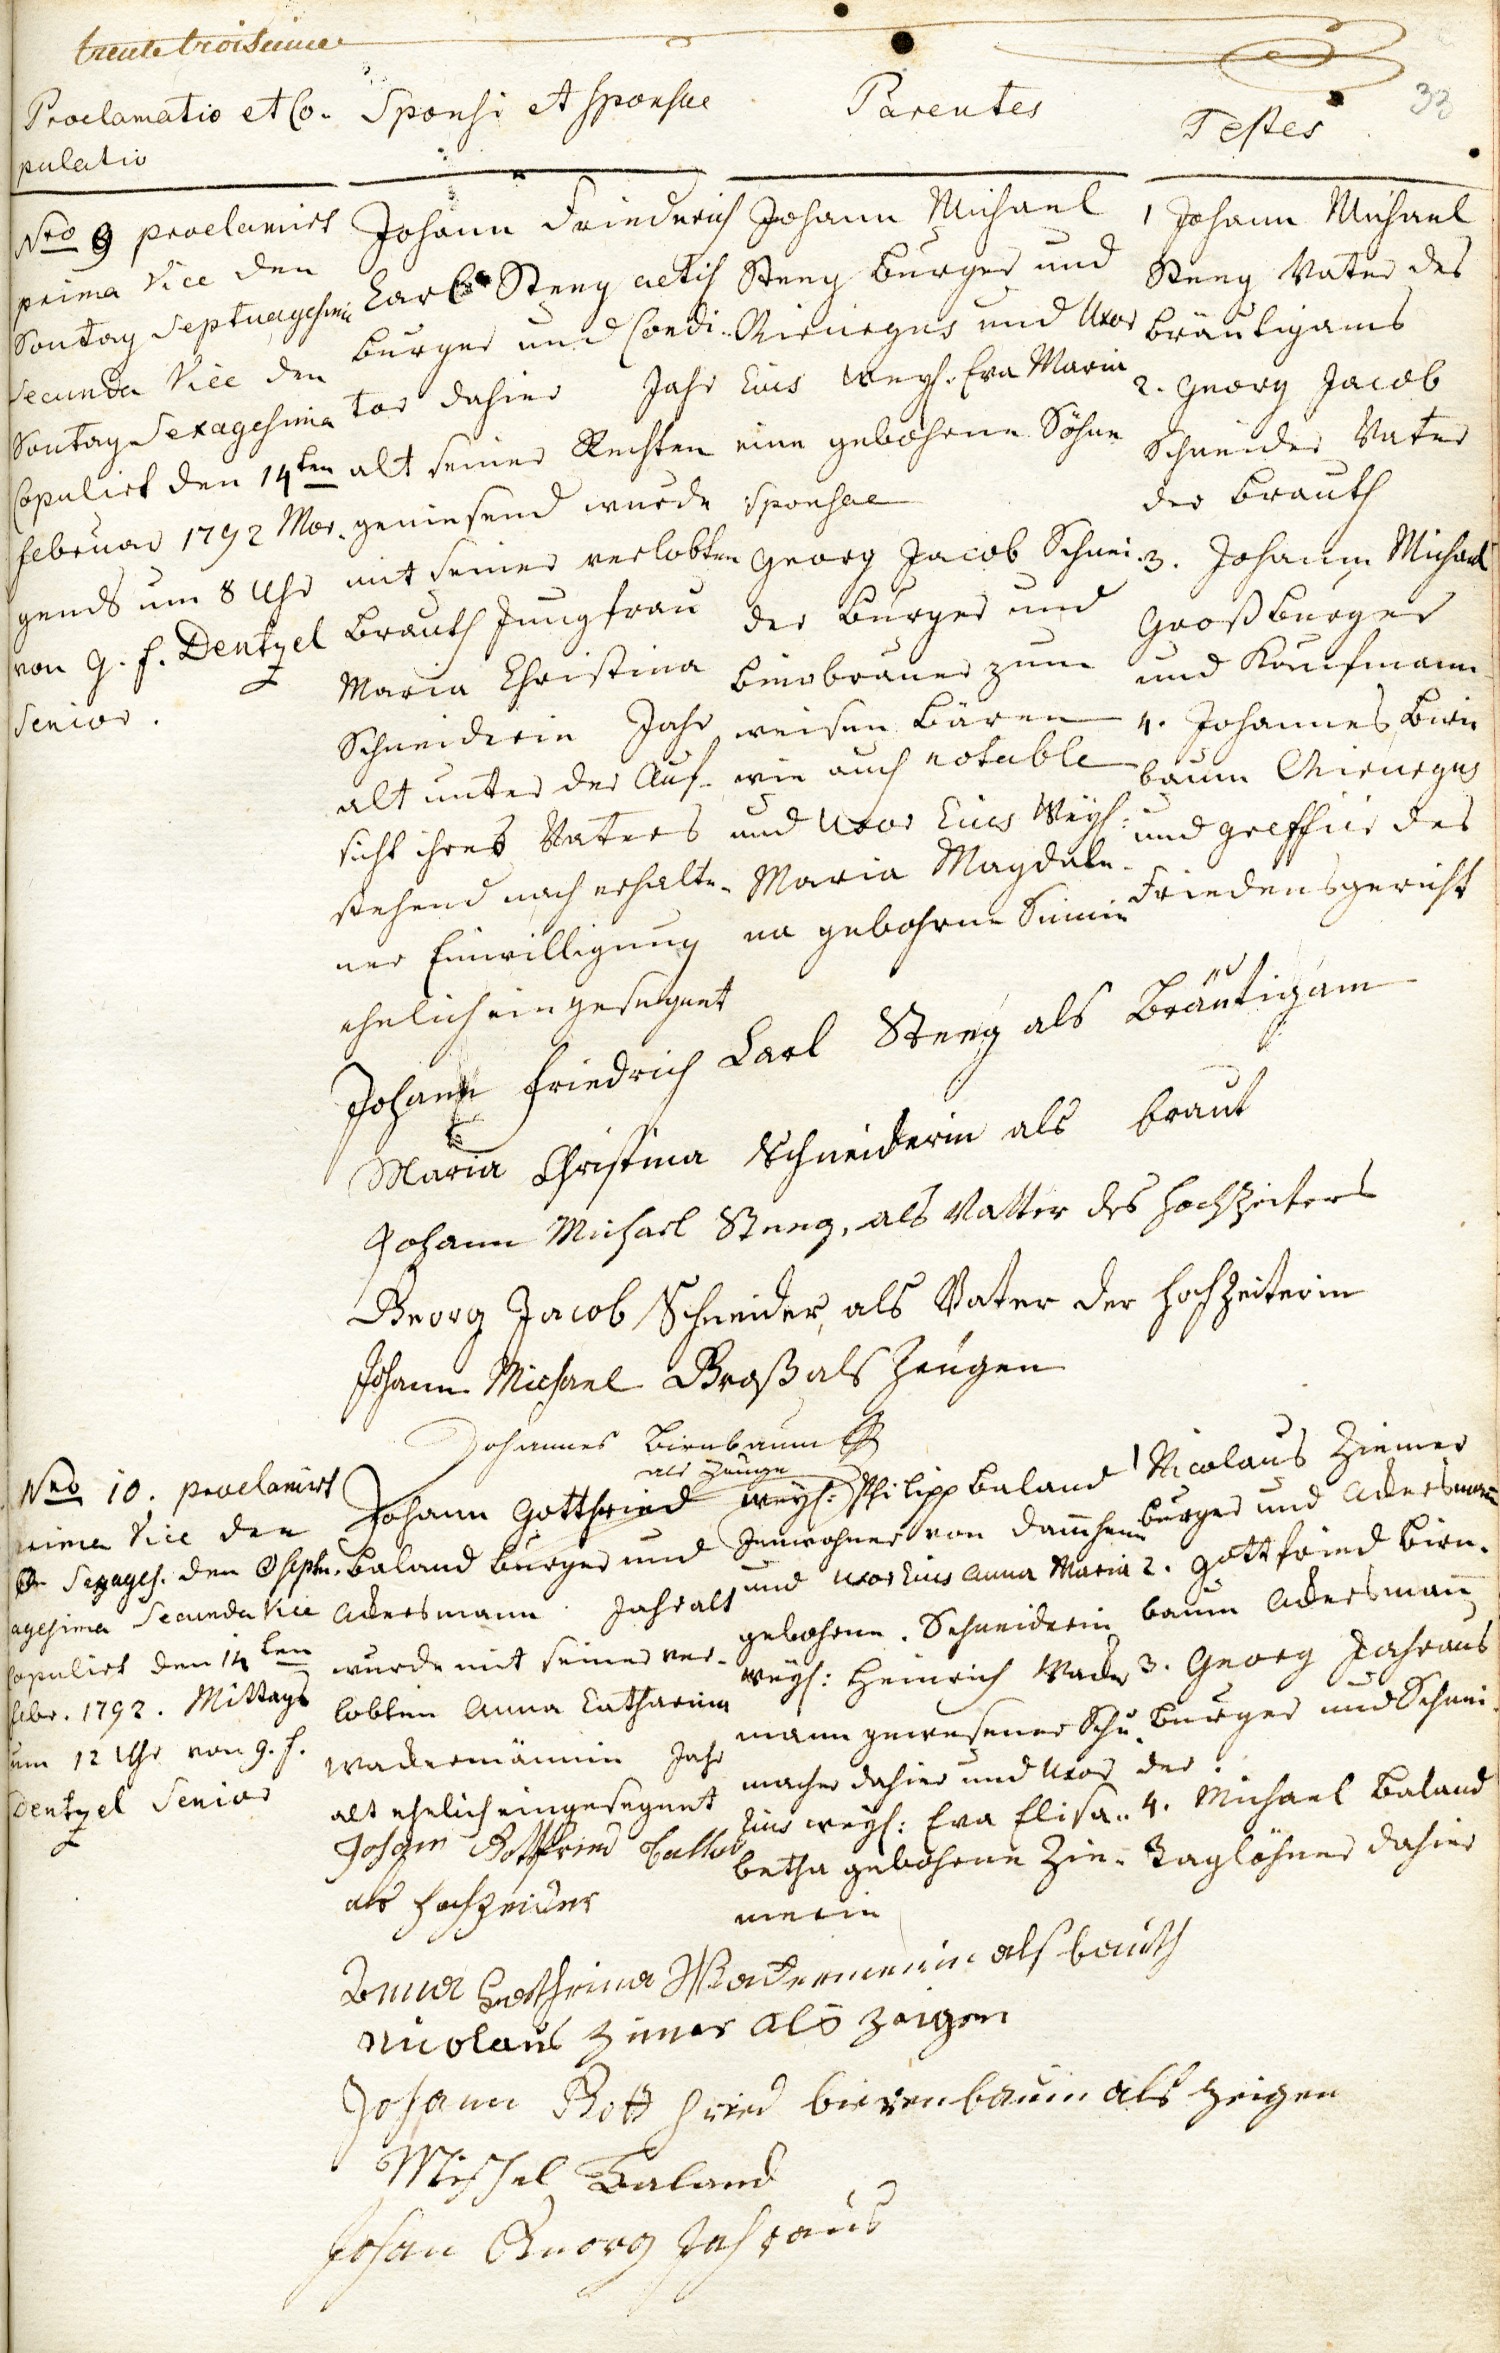 trente troisieme
33
Proclamatio et Co-
pulatio
Sponsi et Sponsae
Parentes
Testes
Nro 9 proclamirt
prima Vice den
Sontag Septuagesima
Secunda Vice den
Sontag Sexagesima
Copulirt den 14ten
Februar 1792 Mor-
gends um 8 Uhr
von G. F. Dentzel
Senior.
Johann Friederich
Carl Steeg
Burger und Condi-
tor dahier Jahr
alt seiner Rechten
geniesend wurde
mit seiner verlobten
Brauth Jungfrau
Maria Christina
Schneiderin Jahr
alt unter der Auf-
sicht ihres Vaters
stehend nach erhalte-
ner Einwilligung
ehelich eingesegnet
Johann Michael
Steeg Burger und
Chirurgus und Uxor
Eius weyl. Eva Maria
eine gebohrne Söhne
Sponsae
Georg Jacob Schnei-
der Burger und
Bierbrauer zum
weisen Bären
wie auch notable
und Uxor Eius Weyl:
Maria Magdale-
na gebohrne
1 Johann Michael
Steeg Vater des
Bräutigams
2. Georg Jacob
Schneider Vater
der Brauth
3. Johann Michael
Groß Burger
und Kaufmann
4. Johannes Birn
baum Chirurgus
und Greffier des
Friedensgericht
Johann Friedrich Carl Steeg als Bräutigam
Maria Christina Schneiderin als braut
Johann Michael Steeg, als Vatter des Hochzeiters
Georg Jacob Schneider, als Vater der Hochzeiterin
Johann Michael Groß als Zeugen
Johannes Birnbaum
als Zeuge
Nro 10. proclamirt
prima Vice den
Sexages. den Septu-
agesima Secunda Vice
Copulirt den 14ten
Febr. 1792. Mittags
um 12 Uhr von G. F.
Dentzel Senior
Johann Gottfried
Baland Burger und
Ackersmann Jahr alt
wurde mit seiner ver-
lobten Anna Catharina
Wackermännin Jahr
alt ehelich eingesegnet
weyl: Philipp Baland
Innwohner von Dammheim
und Uxor Eius Anna Maria
gebohrne Schneiderin
weyl: Heinrich Wacker
mann gewesener Schu-
macher dahier und Uxor
Eius weyl: Eva Elisa-
betha gebohrne Zie-
merin
1 Nicolaus Ziemer
Burger und Ackersmann
2. Gottfried Birn-
baum Ackersmann
3. Georg Jahraus
Burger und Schnei-
der.
4. Michael Baland
Taglöhner dahier
Johann Gottfried
als Hochzeider
Anna Wackermenin als brauth
Nicolaus Zimer als zeigen
Johann Gott fried bierenbaum als zeigen
Michel Baland
Johan Georg Jahraus